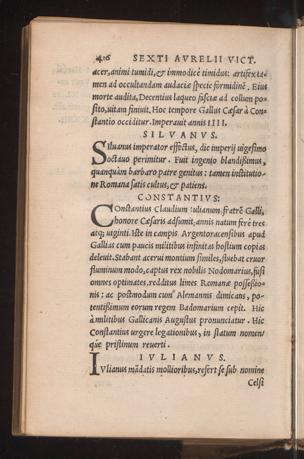 416 SEXTI AVRELII VICT.
acer, animi tumidi, & immodicè timidus: artifex ta-
men ad occultandam audaciæ specie formidinē. Eius
morte audita, Decentius laqueo fasciæ ad collum po-
sito, uitam finiuit. Hoc tempore Gallus Cæsar à Con-
stantio occiditur. Imperauit annis IIII.
SILVANVS.
Siluanus imperator effectus, die imperij uigesimo
octauo perimitur. Fuit ingenio blandißimus,
quanquàm barbaro patre genitus: tamen institutio-
ne Romana satis cultus, & patiens.
CONSTANTIVS:
Constantius Claudium Iulianum fratrē Galli,
honore Cæsaris adsumit, annis natum ferè tres
atq; uiginti. Iste in campis Argentoracensibus apud
Gallias cum paucis militibus infinitas hostium copias
deleuit. Stabant acerui montium similes, fluebat cruor
fluminum modo, captus rex nobilis Nodomarius, fusi
omnes optimates, redditus limes Romanæ possessio-
nis: ac postmodum cum Alemannis dimicans, po-
tentißimum eorum regem Badomarium cepit. Hic
à militibus Gallicanis Augustus pronunciatur. Hic
Constantius urgere legationibus, in statum nomen-
que pristinum reuerti.
IVLIANVS.
Iulianus mādatis mollioribus, refert se sub nomine
Celsi